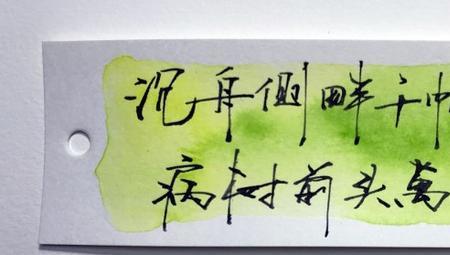 沉舟側畔千
病树前头萬